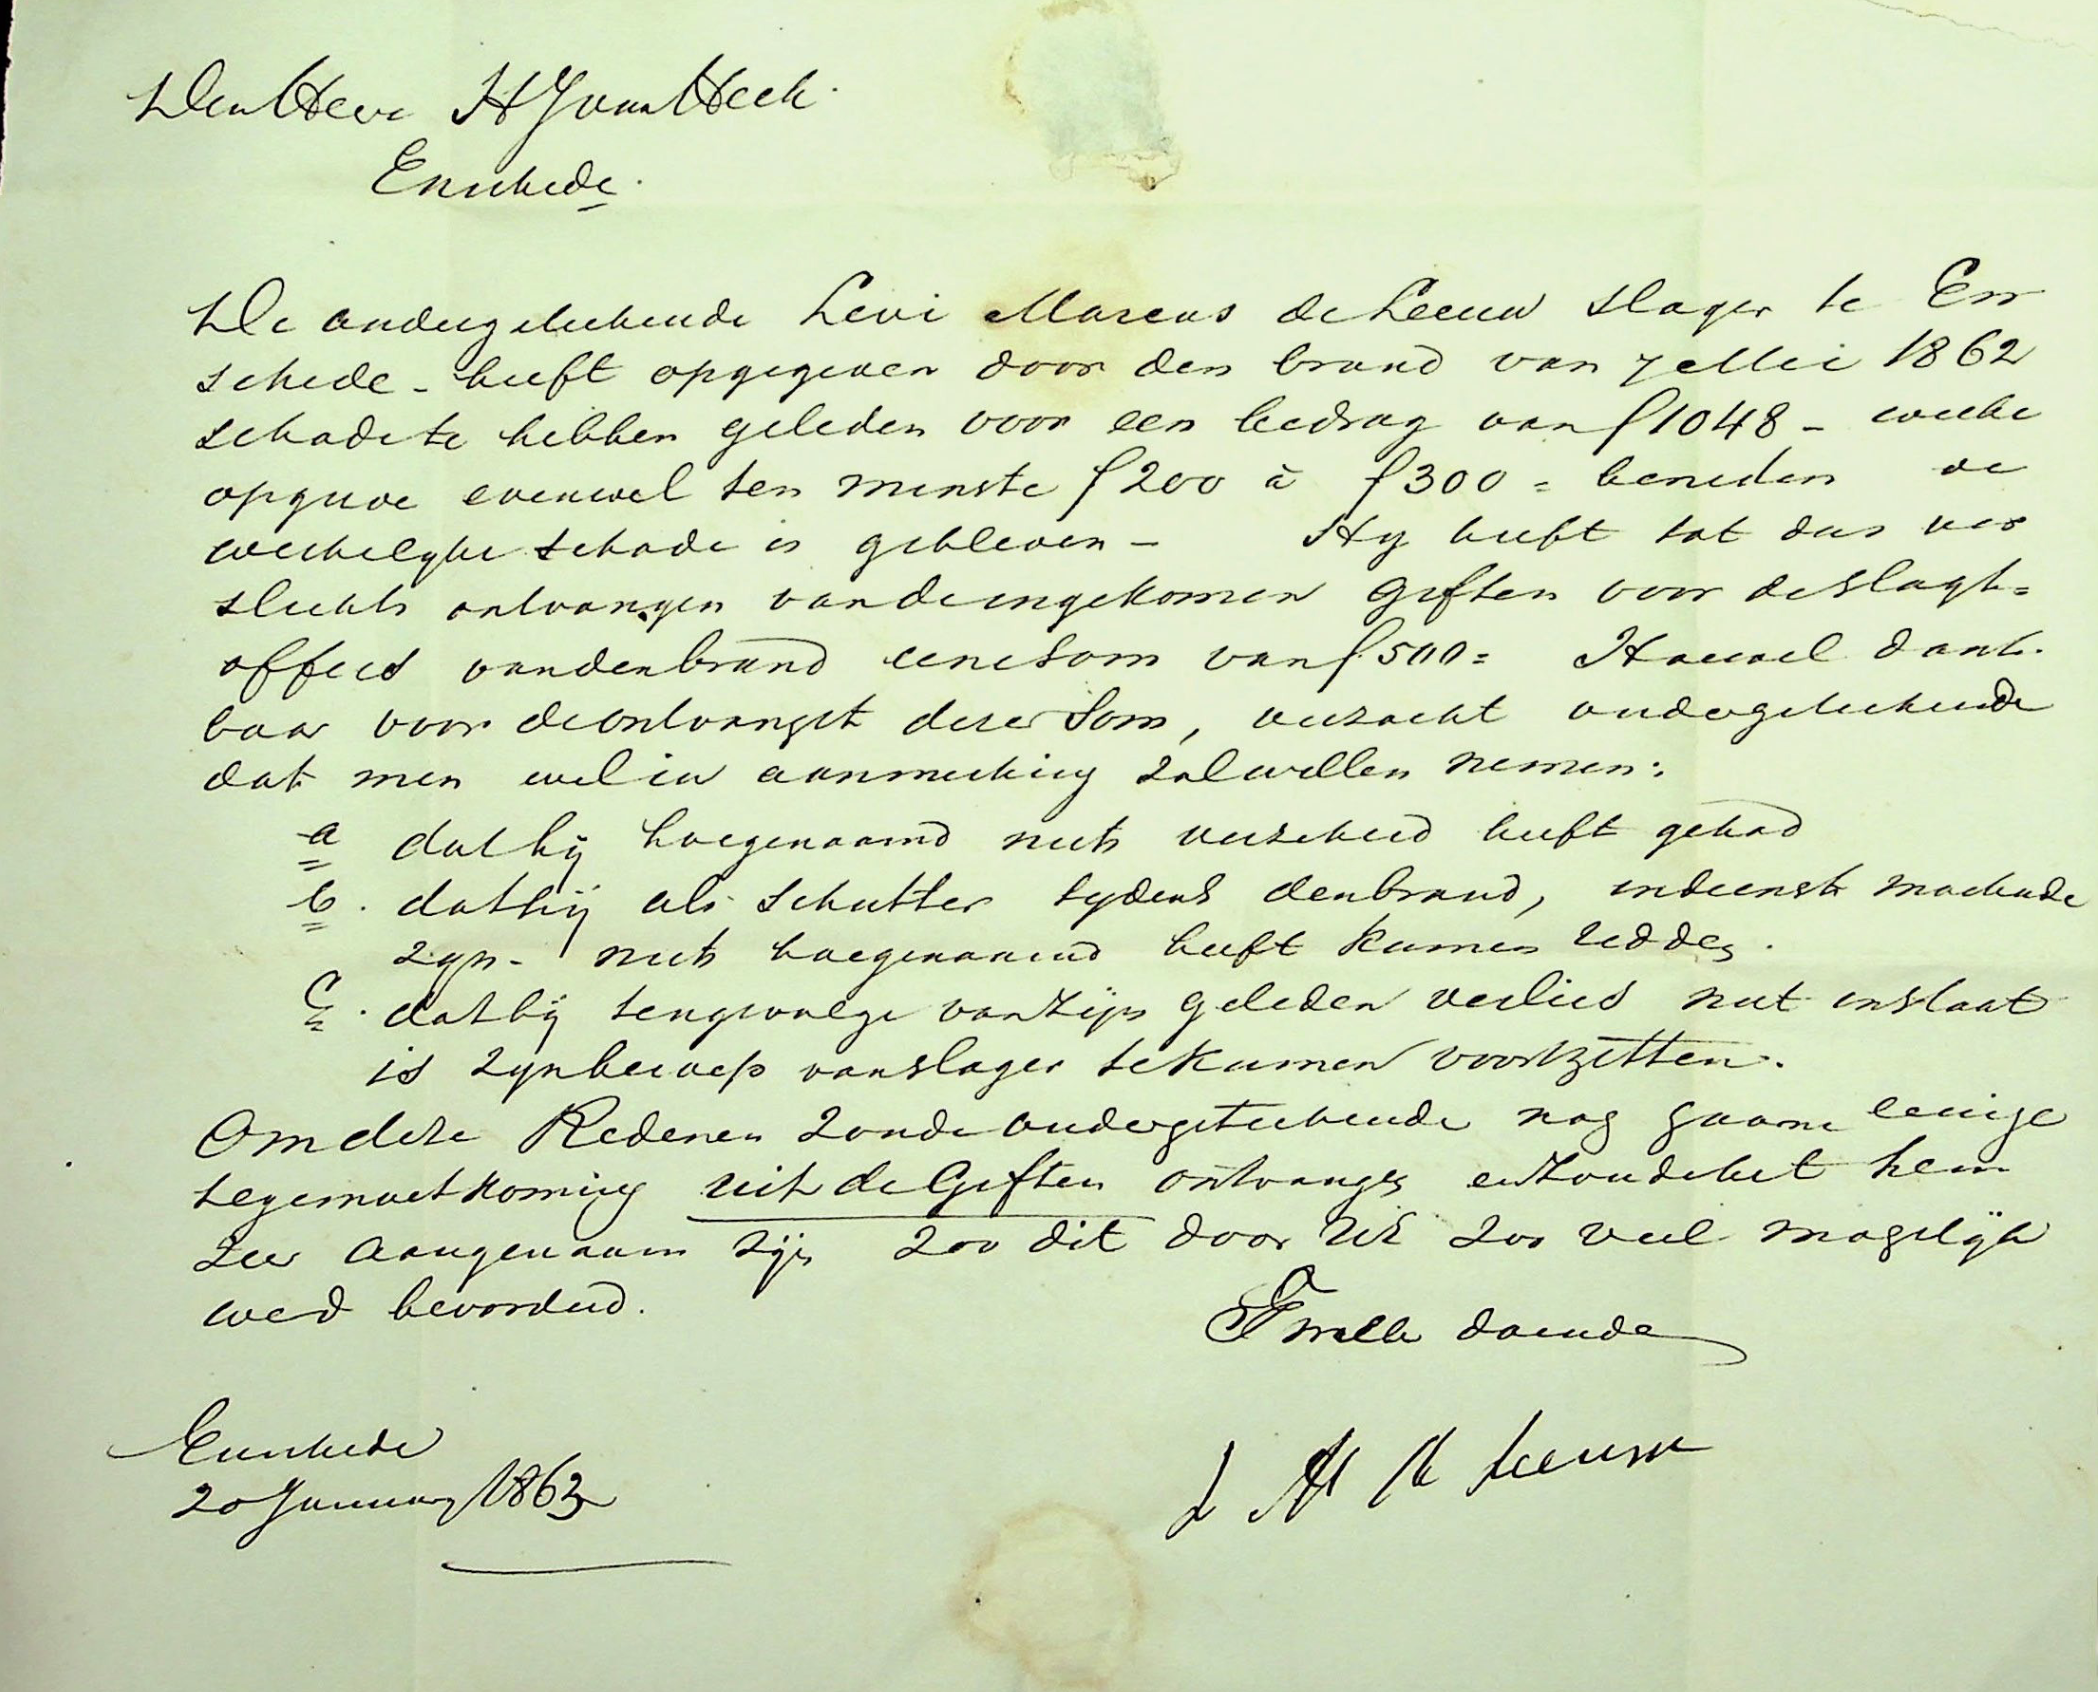 Den Heer H J van Heek.
Enschede.
De ondergeteekende Levi Marcus de Leeuw slager te En
schede - heeft opgegeven door den brand van 7 Mei 1862
schade te hebben geleden voor een bedrag van f 1048 - welke
opgave evenwel ten minste f 200 à f 300 = beneden de
werkelyke schade is gebleven - Hy heeft tot dus ver
slechts ontvangen van de ingekomen giften voor de slagt=
offers van den brand eene som van f 500 = Hoewel dank-
baar voor de ontvangst dezer Som, verzoekt ondergeteekende
dat men wel in aanmerking zal willen nemen:
a dat hij hoegenaamd niets verzekerd heeft gehad
b. dat hij als Schutter tydens den brand, in dienst moetende
zyn - niets hoegenaamd heeft kunnen redden.
c. dat hij tengevolge van zijn geleden verlies niet in staat
is zyn beroep van slager te kunnen voortzetten.
Om deze Redenen zoude ondergeteekende nog gaarne eenige
tegemoetkoming uit de Giften ontvangen en zoude het hem
zeer aangenaam zijn zoo dit door UE zoo veel mogelijk
werd bevorderd.
't welk doende
Enschede
20 January 1863
L M de Leeuw